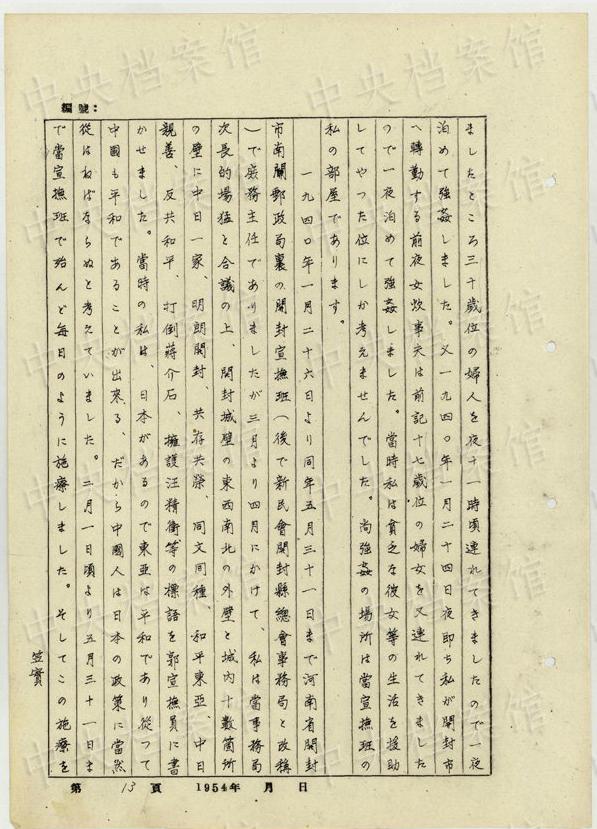 編號:
ましたところ三十歳位の婦人を夜十一時頃連れてきましたので一夜
泊めて強姦しました。又一九四〇年一月二十四日夜即ち私が開封市
へ轉勤する前夜女炊事夫は前記十七歳位の婦女を又連れてきました
ので一夜泊めて強姦しました。當時私は貧乏な彼女等の生活を援助
してやった位にしか考えませんでした。尚強姦の場所は當宣撫班の
私の部屋であります。
一九四〇年一月二十六日より同年五月三十一日まで河南省開封
市南關郵政局裏の開封宣撫班(後で新民會開封縣總會事務局と改稱
)で庶務主任でありましたが三月より四月にかけて、私は當事務局
次長的場猛と合議の上、開封城壁の東西南北の外壁と城内十數箇所
の壁に中日一家、明朗開封、共存共榮、同文同種、和平東亜、中日
親善、反共和平、打倒蔣介石、擁護汪精衛等の標語を郭宣撫員に書
かせました。當時の私は、日本があるので東亜は平和であり從って
中國も平和であることが出來る、だから中國人は日本の政策に當然
從はねばならぬと考えていました。二月一日頃より五月三十一日ま
で當宣撫班で殆んど毎日のように施療しました。そしてこの施療を
笠實
第 13 頁 1954年 月 日
中央档案馆